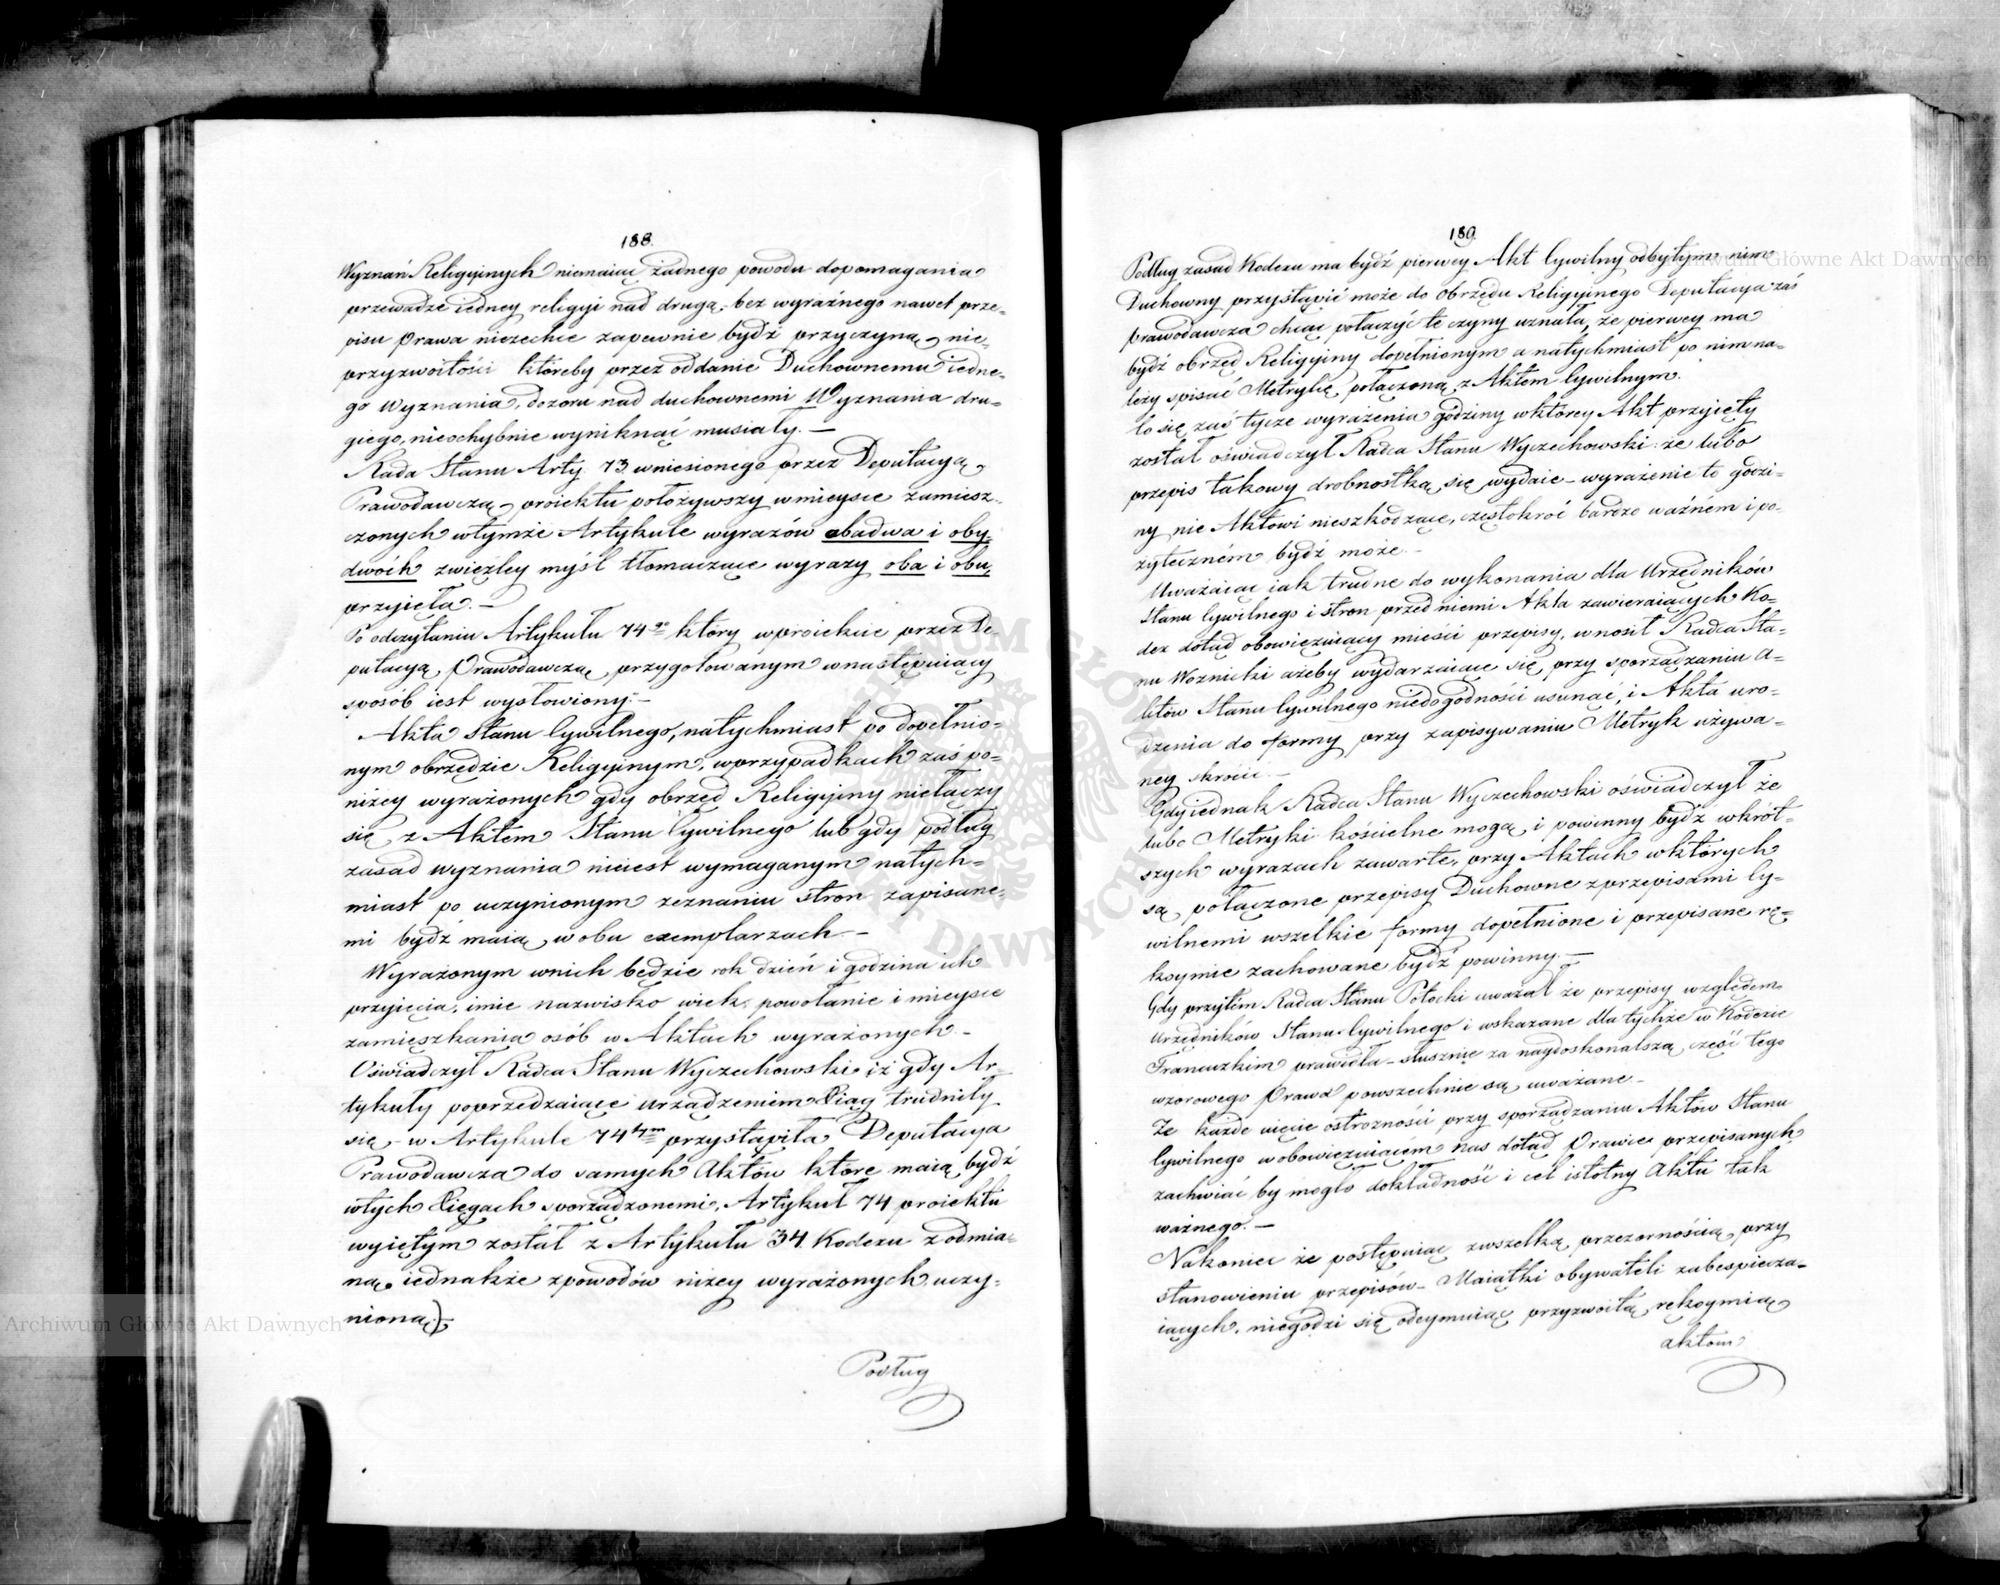 188.
Wyznań Religyinych niemaiąc żadnego powodu dopomagania
przewadze iedney religyi nad drugą, bez wyraźnego nawet prze-
pisu Prawa niezechce zapewnie bydź przyczyną, nie-
przyzwoitości któreby przez oddanie Duchownemu iedne-
go Wyznania, dozoru nad duchownemi Wyznania dru-
giego, nieochybnie wyniknąć musiały. —
Rada Stanu Arty. 73 wniesionego przez Deputacyą
Prawodawczą, proiektu położywszy wmieysce zamiesz-
czonych wtymże Artykule wyrazów obadwa i oby-
dwóch zwięzley myśl tłomaczące wyrazy oba i obu,
przyięła. —
Po odczytaniu Artykułu 74go który wproiekcie przez De-
putacyą Prawodawczą przygotowanym wnastępuiący
sposób iest wysłowiony: —
Akta Stanu Cywilnego, natychmiast po dopełnio-
nym obrzędzie Religyinym, wprzypadkach zaś po-
niżey wyrażonych gdy obrzęd Religyiny niełączy
się z Aktem Stanu Cywilnego lub gdy podług
zasad wyznania nieiest wymaganym natych-
miast po uczynionym zeznaniu stron zapisane-
mi bydź maią, w obu exemplarzach. —
Wyrażonym wnich będzie rok dzień i godzina ich
przyięcia, imie nazwisko wiek, powołanie i mieysce
zamięszkania osób w Aktach wyrażonych. —
Oświadczył Radca Stanu Wyczechowski iż gdy Ar-
tykuły poprzedzaiące urządzeniem Xiąg trudniły
się - w Artykule 74tym przystąpiła Deputacya
Prawodawcza do samych Aktów które maią bydź
wtych Xięgach sporządzonemi, Artykuł 74 proiektu
wyiętym został z Artykułu 34 Kodexu z odmia-
ną iednakże zpowodów niżey wyrażonych uczy-
nioną.)
Podług
189.
Podług zasad Kodexu ma bydź pierwey Akt Cywilny odbytym nim
Duchowny przystąpić może do Obrzędu Religyinego Deputacya zaś
Prawodawcza chcąc połączyć te czyny uznała, że pierwey ma
bydź obrzęd Religyiny dopełnionym a natychmiast po nim na-
leży spisać Metrykę połączoną z Aktem Cywilnym.
Co się zaś tycze wyrażenia godziny wktórey Akt przyięty
został oświadczył Radca Stanu Wyczechowski: że lubo
przepis takowy drobnostką się wydaie - wyrażenie te godzi-
ny, nie Aktowi nieszkodzące, częstokroć bardzo ważnem i po-
żytecznem bydź może. —
Uważaiąc iak trudne do wykonania dla Urzędników
Stanu Cywilnego i stron przed niemi Akta zawieraiących Ko-
dex dotąd obowiązuiący mieści przepisy, wnosił Radca Sta-
nu Woznicki ażeby wydarzaiące się, przy sporządzaniu A-
któw Stanu Cywilnego niedogodności usunąć, i Akta uro-
dzenia do formy przy zapisywaniu Metryk używa-
ney skrócić. —
Gdy iednak Radca Stanu Wyczechowski oświadczył że
lubo Metryki kościelne mogą i powinny bydź wkrót-
szych wyrazach zawarte, przy Aktach wktórych
są połączone przepisy Duchowne zprzepisami Cy-
wilnemi wszelkie formy dopełnione i przepisane rę-
koymie zachowane bydź powinny. —
Gdy przytém Radca Stanu Potocki uważał że przepisy względem
Urzędników Stanu Cywilnego i wskazane dla tychże w Kodexie
Francuzkim prawidła - słusznie za naydoskonalszą część tego
wzorowego Prawa powszechnie są uważane -
Że każde uięcie ostrożności przy sporządzaniu Aktów Stanu
Cywilnego wobowiązuiącém nas dotąd Prawie przepisanych
zachwiać by mogło dokładność i cel istotny Aktu tak
ważnego. —
Nakoniec że postępuiąc zwszelką przezornością przy
stanowieniu przepisów - Maiątki obywateli zabespiecza-
iących, niegodzi się odeymuiąc przyzwoitą rękoymią
aktom
Archiwum Główne Akt Dawnych
Archiwum Główne Akt Dawnych
ARCHIWUM GŁÓWNE AKT DAWNYCH